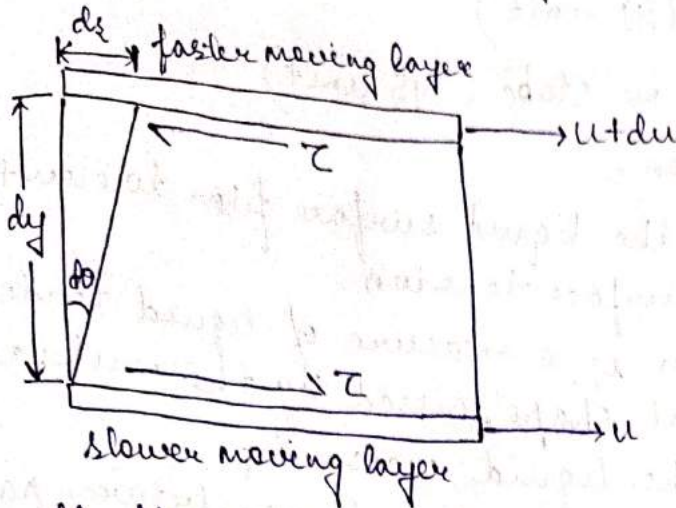 dx
faster moving layer
u+du
τ
dy
dθ
τ
u
slower moving layer